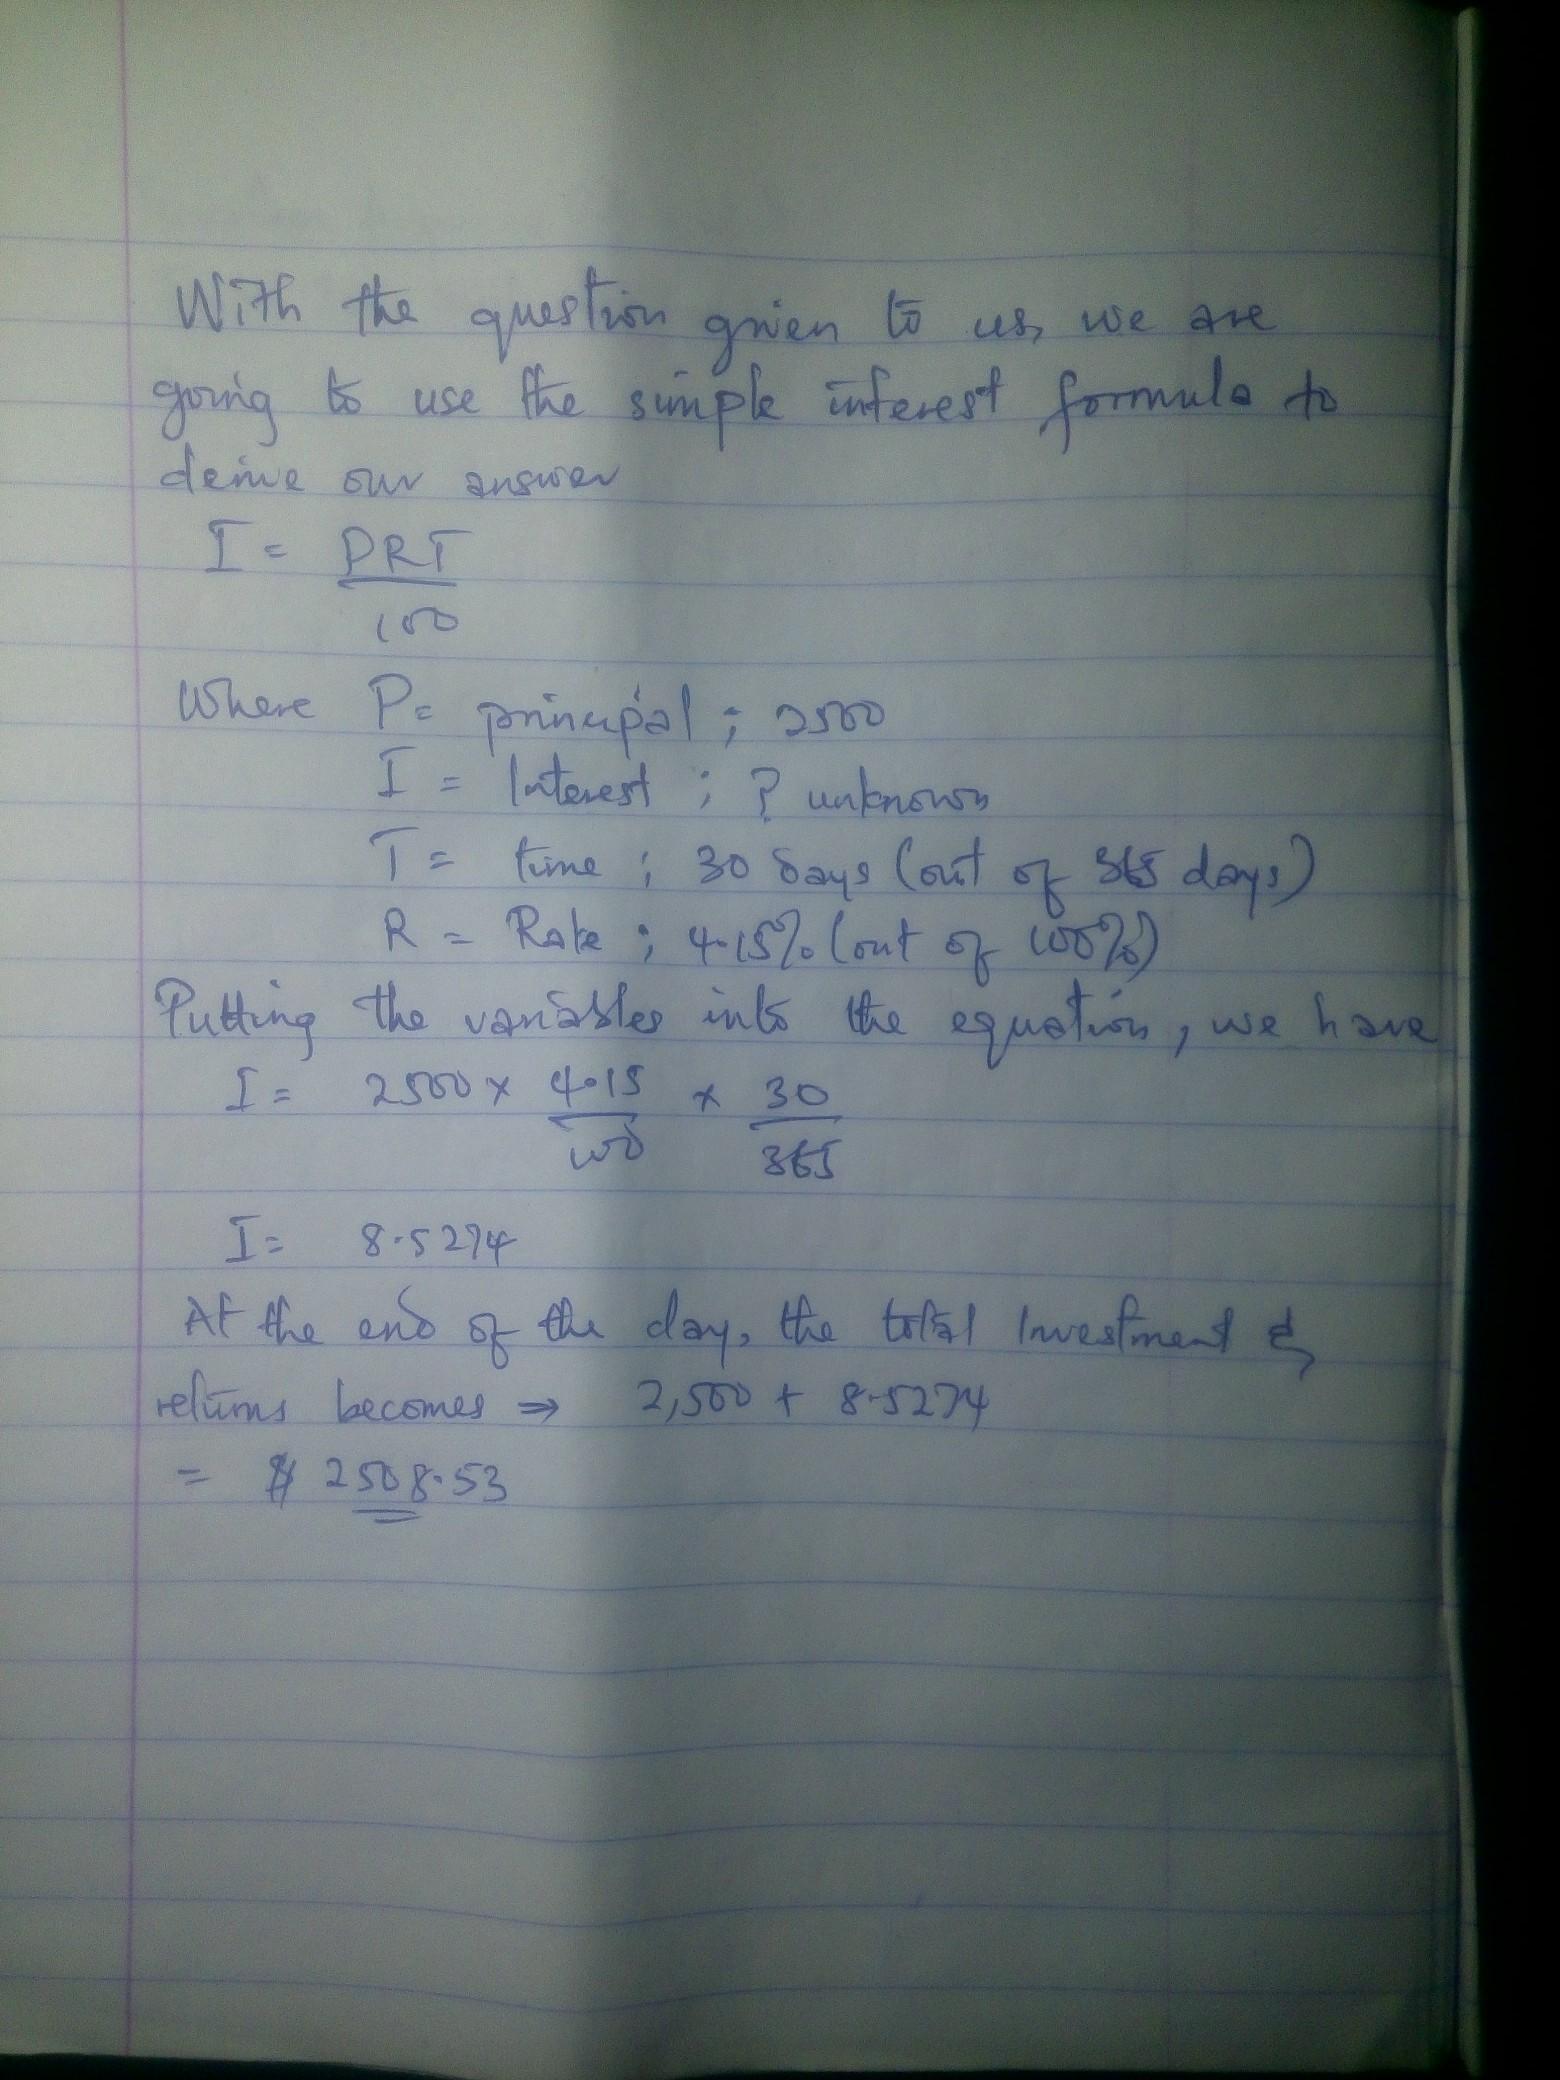 With the question given to us, we are
going to use the simple interest formula to
derive our answer
I = PRT
100
Where P = principal ; 2500
I = Interest ; ? unknown
T = time ; 30 days (out of 365 days)
R = Rate ; 4.15% (out of 100%)
Putting the variables into the equation, we have
I = 2500 × 4.15 × 30
100 365
I = 8.5274
At the end of the day, the total Investment &
returns becomes ⇒ 2,500 + 8.5274
= $ 2508.53